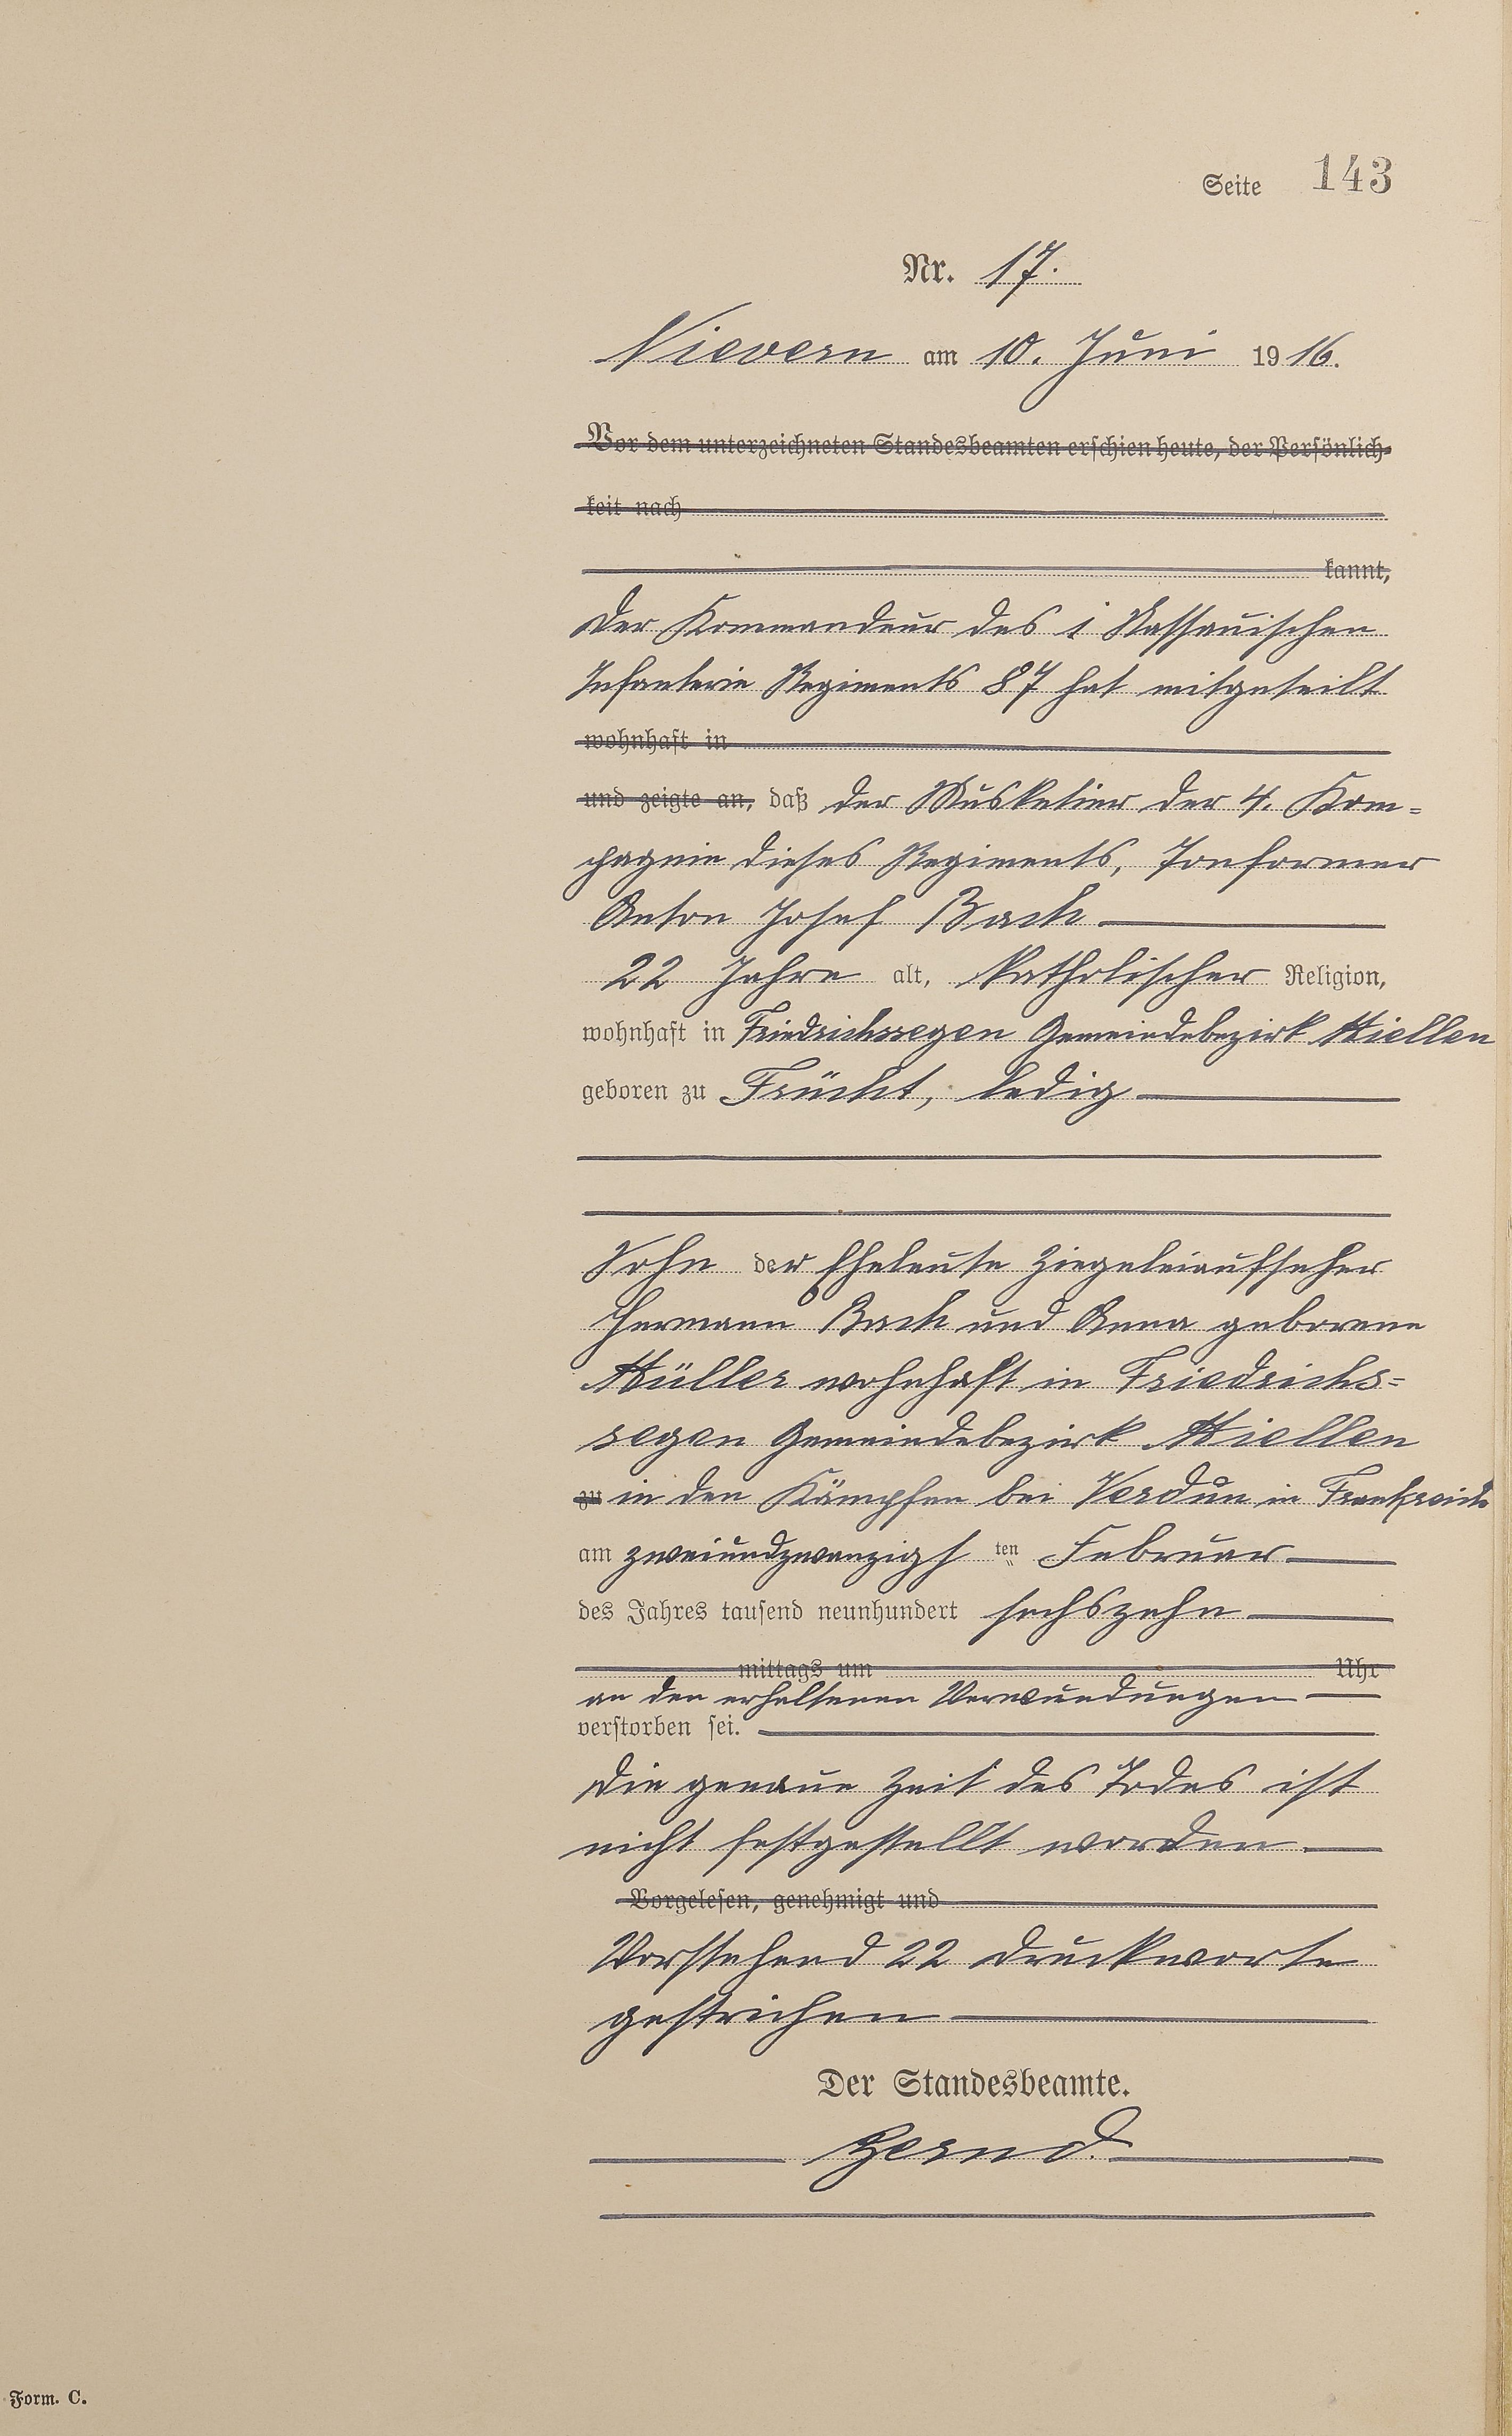 Seite 143
Nr. 17.
Nievern am 10. Juni 1916.
Vor dem unterzeichneten Standesbeamten erschien heute, der Persönlich-
keit nach
kannt,
Der Kommandeur des 1 Nassauischen
Infanterie Regiments 87 hat mitgeteilt
wohnhaft in
und zeigte an, daß der Musketier der 4. Kom=
pagnie dieses Regiments, Tonformer
Anton Josef Bach
22 Jahre alt, katholischer Religion,
wohnhaft in Friedrichssegen Gemeindebezirk Miellen
geboren zu Frücht, ledig
Sohn der Eheleute Ziegeleiaufseher
Hermann Bach und Anna geborene
Müller wohnhaft in Friedrichs=
segen Gemeindebezirk Miellen
zu in den Kämpfen bei Verdun in Frankreich
am zweiundzwanzigsten Februar
des Jahres tausend neunhundert sechszehn
mittags um Uhr
an den erhaltenen Verwundungen
verstorben sei.
Die genaue Zeit des Todes ist
nicht festgestellt worden
Vorgelesen, genehmigt und
Vorstehend 22 Druckworte
gestrichen
Der Standesbeamte.
Form. C.